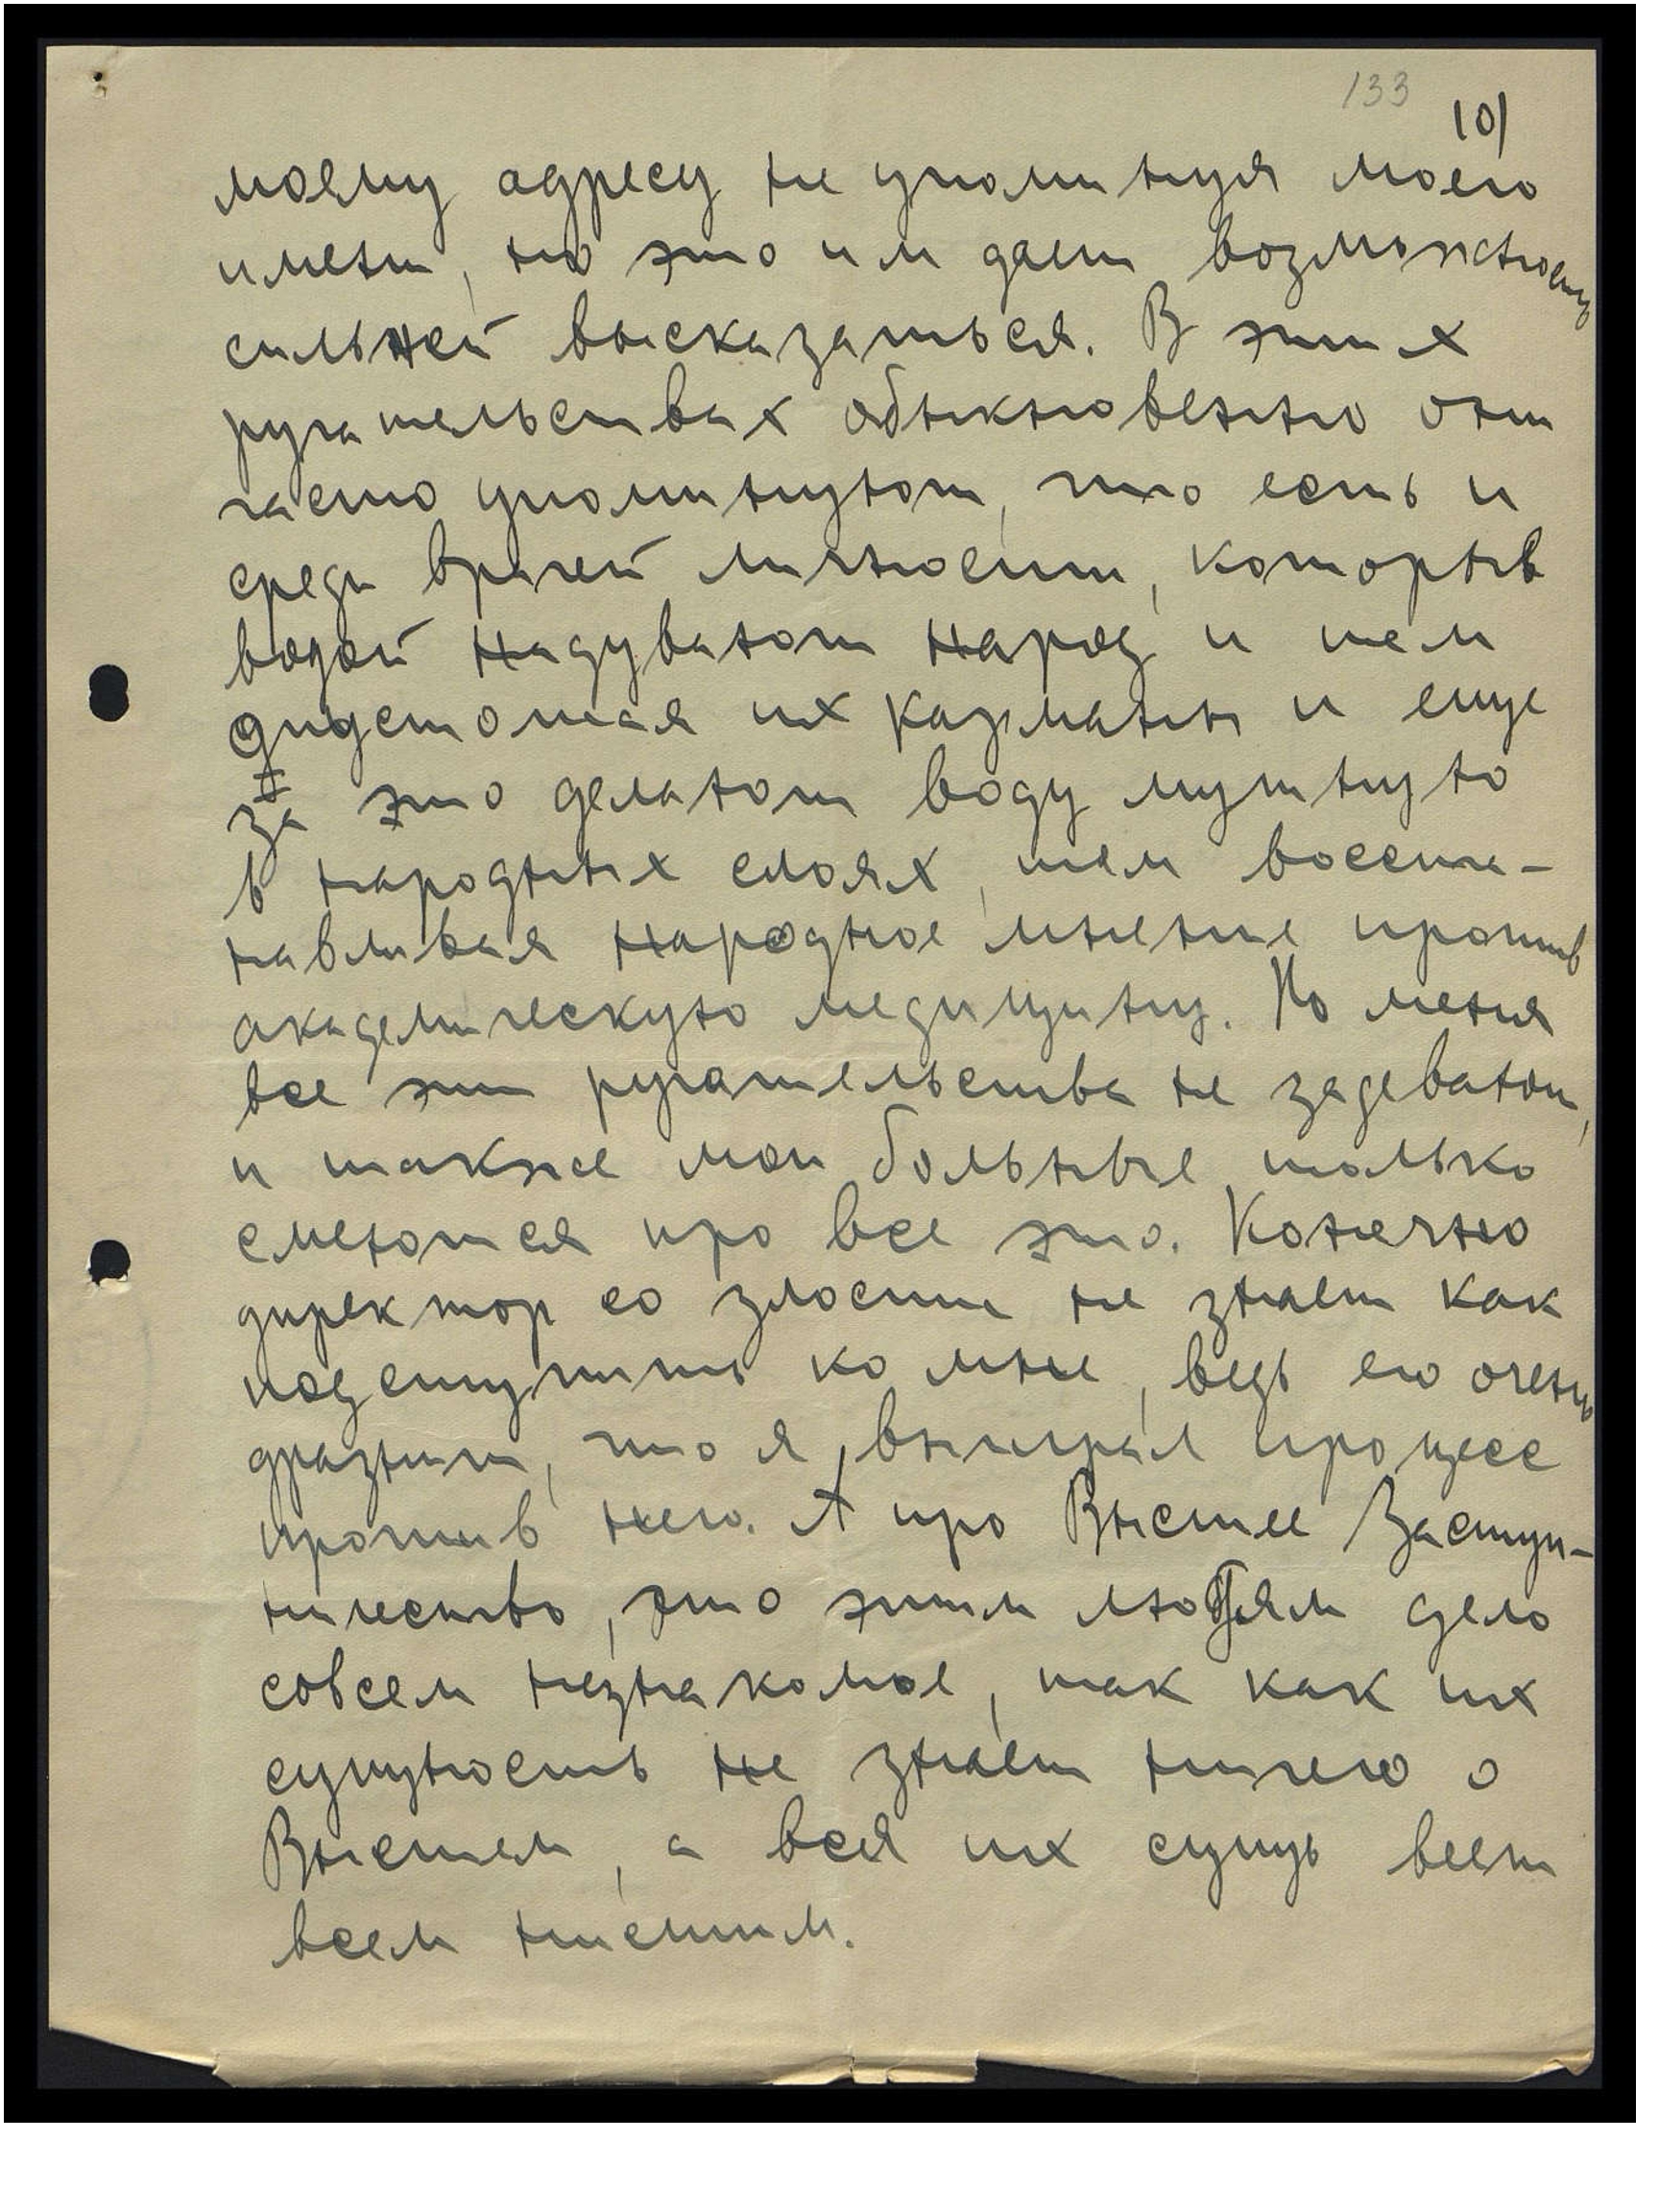 133
10)
моему адресу не упоминуя моего
имени, но это им дает возможность
сильней высказаться. В этих
ругательствах обыкновенно они
часто упоминуют, что есть и
среди врачей личности, которые
водой надувают народ и тем
опустошая их карманы и еще
за это делают воду мутную
в народных слоях, тем восста-
навливая народное мнение против
академическую медицину. Но меня
все эти ругательства не задевают,
и также мои больные только
смеются про все это. Конечно
директор со злости не знает как
подступить ко мне, ведь его очень
дразнит, что я выиграл процесс
против него. А про Высшее Заступ-
ничество, это этим людям дело
совсем незнакомое, так как их
сущность не знает ничего о
Высшем, а вся их сущь веет
всем низшим.